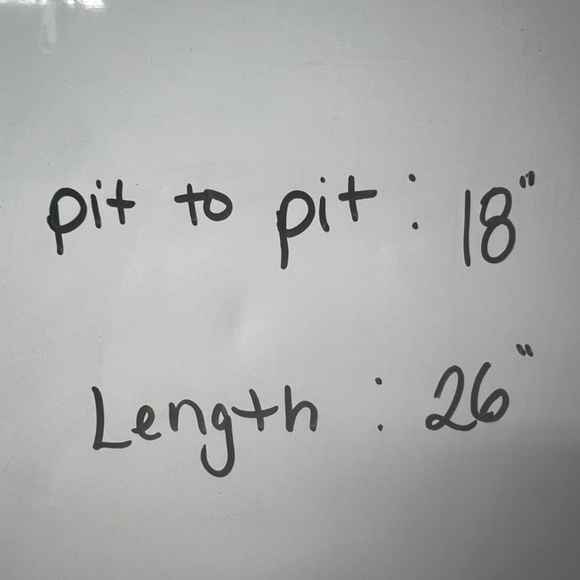 pit to pit : 18"
Length : 26"